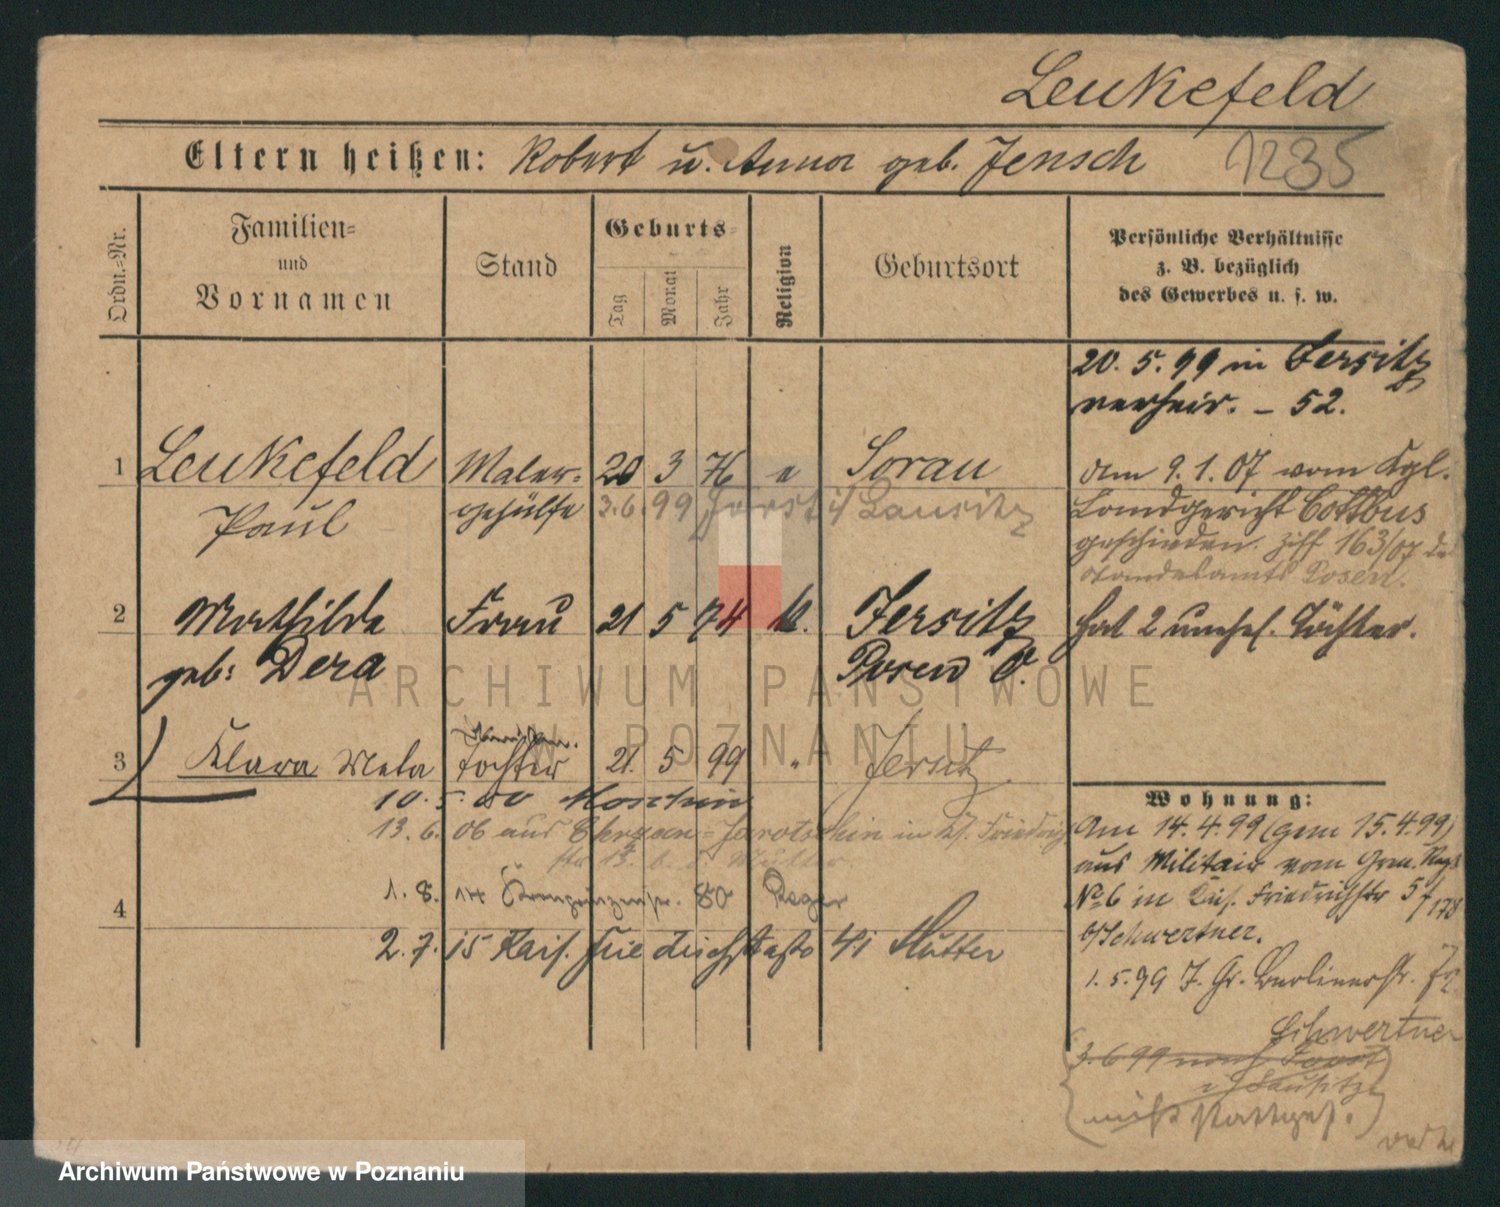 Leukefeld
Eltern heißen: Robert u. Anna geb. Jensch
1235
Ordn.-Nr.
Familien- und Vornamen
Stand
Geburts-
Tag
Monat
Jahr
Religion
Geburtsort
Persönliche Verhältnisse
z. B. bezüglich
des Gewerbes u. s. w.
20. 5. 99 in Jersitz
verheir. – 52.
1 Leukefeld Maler- 20 3 76 e Sorau
Paul gehülfe 3.6. 99 Forst i/ Lausitz
am 9. 1. 07 vom Kgl.
Landgericht Cottbus
geschieden. Ziff 163/07 des
Standesamts Posen.
2 Mathilde Frau 21 5 74 k. Jersitz
geb: Dera Posen O.
hat 2 unehel. Töchter.
3 Klara Meta Tochter 21. 5 99 " Jersitz
10. 5. 00 Moschin
13. 6. 06 aus Jarotschin in Kais. Friedrich
str 13. b. d. Mutter
4
1. 8. 14 Kronprinzenstr. 80
2. 7. 15 Kais. Friedrichstraße 41 Mutter
Wohnung:
Am 14. 4. 99 (gem 15.4.99)
aus Militair vom Gren. Regt
No 6 in Kais. Friedrichstr
b/Schwertner.
1. 5. 99 J. Gr. Berlinerstr.
Schwertner
3. 6 99 nach Forst
i/ Lausitz
nicht stattgef.
ARCHIWUM PAŃSTWOWE
W POZNANIU
Archiwum Państwowe w Poznaniu